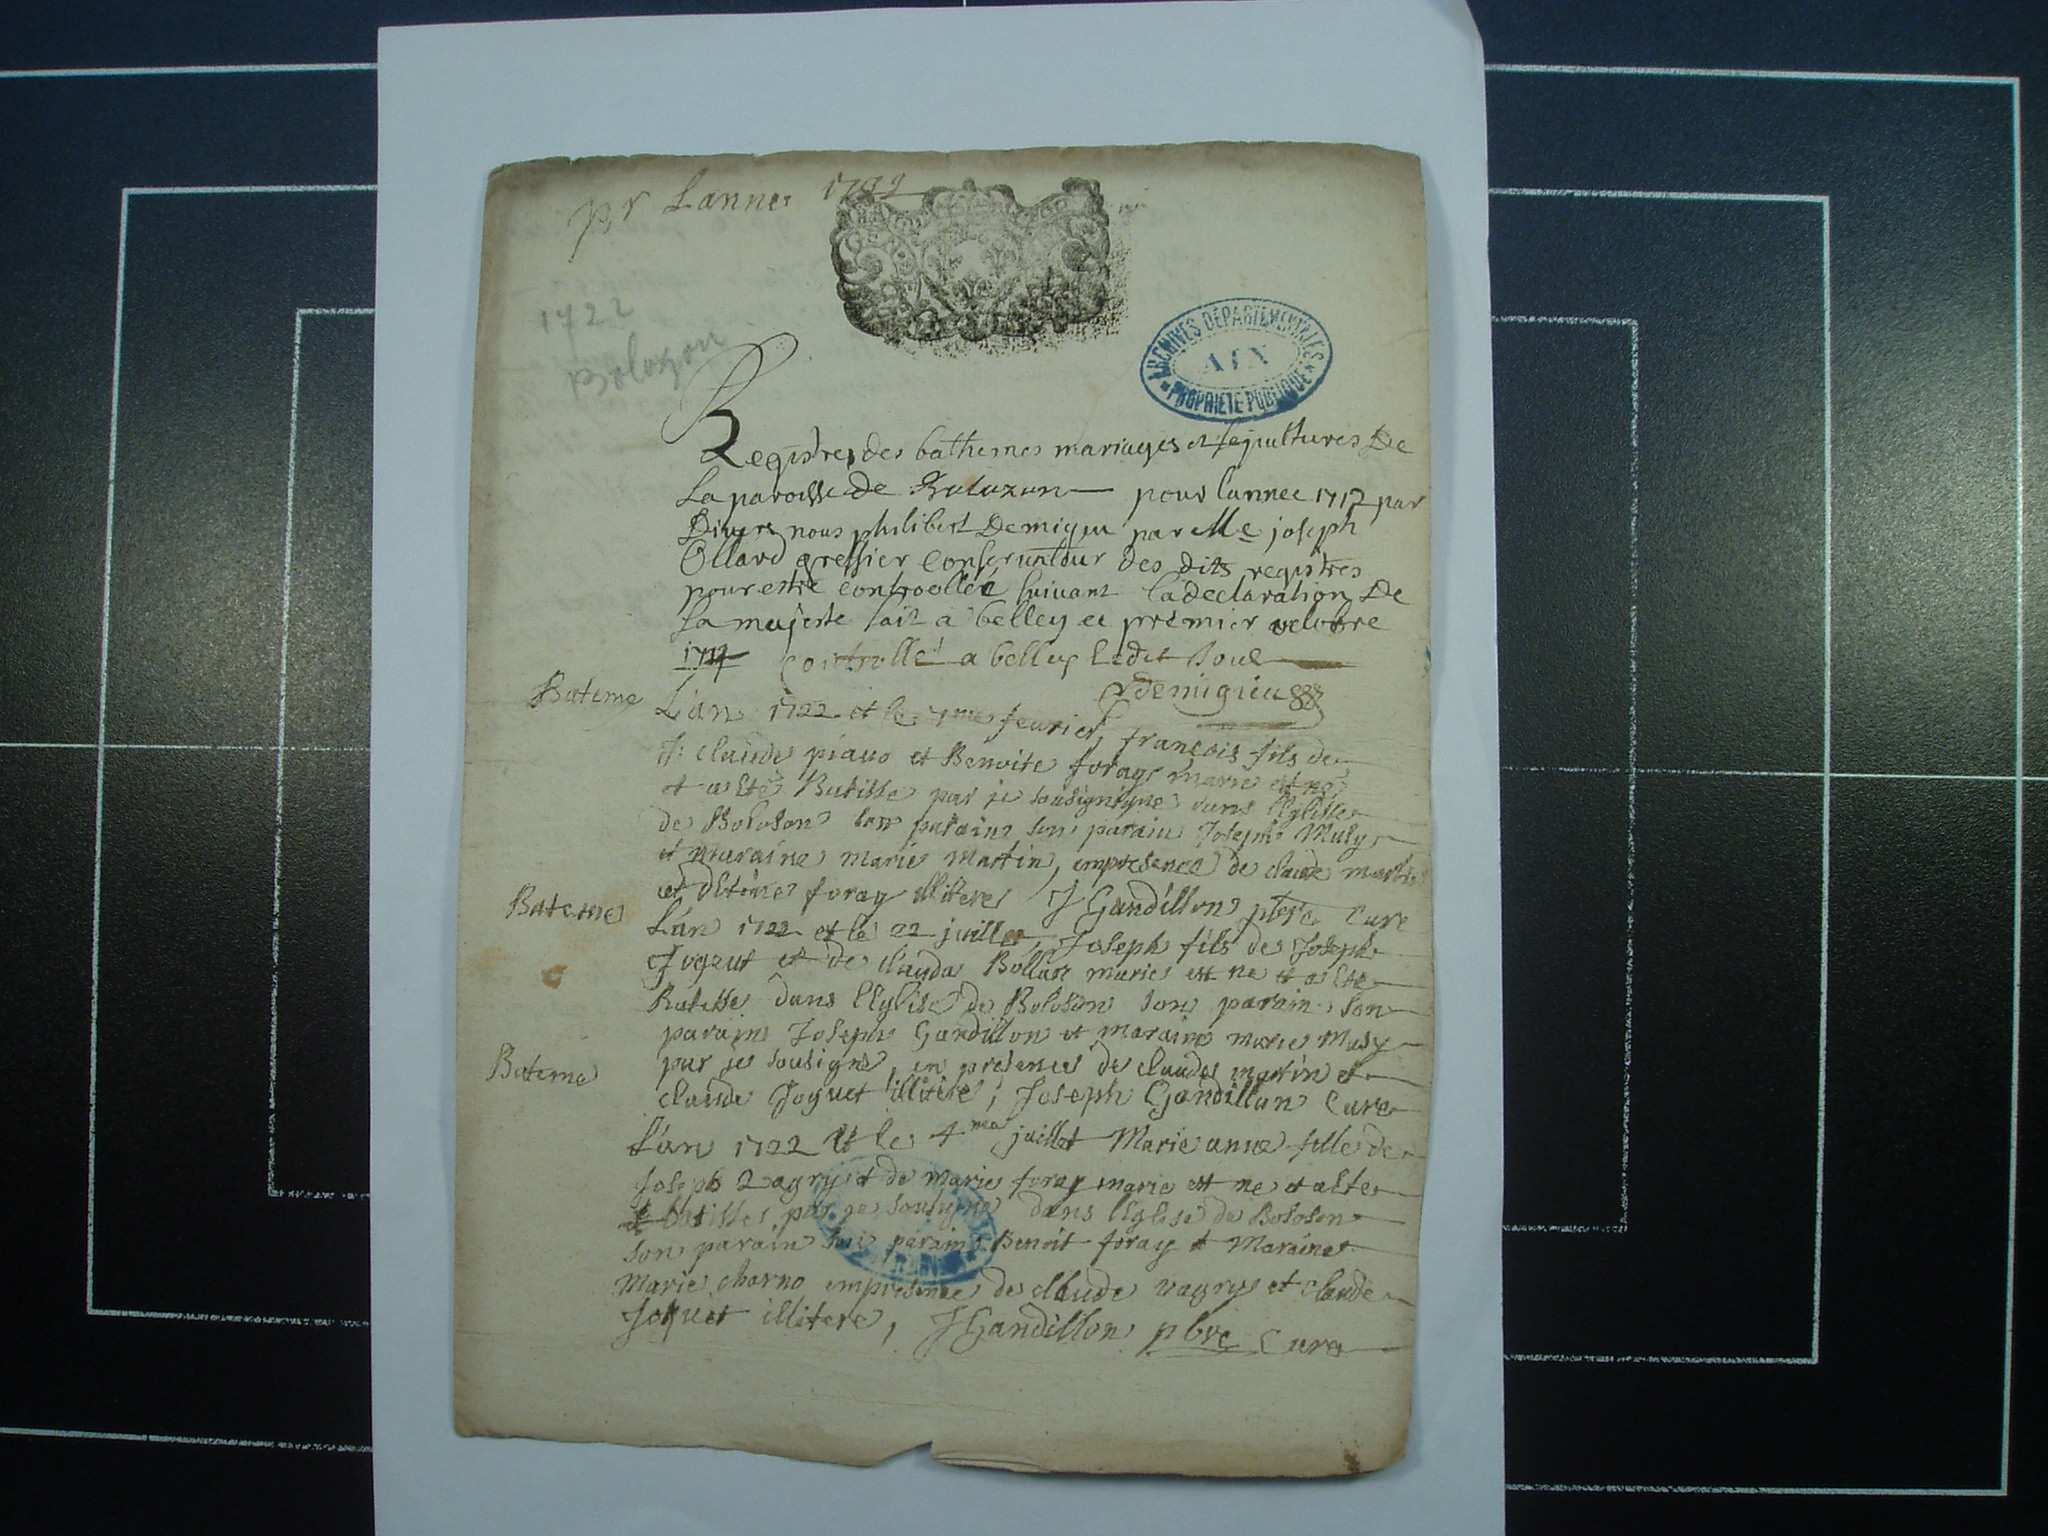 pr Lannee 1722
1722
Bolozon
ARCHIVES DEPARTEMENTALES
AIN
PROPRIETE PUBLIQUE
Registres des bathemes mariages et sepultures De
La paroisse de Boluzun pour lannee 1712 par
Divers nous philibert Demigieu par Me joseph
Ollard greffier conservateur des dits registres
pour estre controollée suivant la declaration De
Sa majeste fait a belley ce premier octobre
1712 controllé a belley ledit Jour
demigieu
Bateme
L'an 1722 et le 7me fevrier, françois fils de
J: claude piavo et Benoite foray marié et né
et a Eté Batisse par je sousignigne dans l'Eglisse
de Boloson son parain son parain Joseph Musy
et maraine marie martin, empresence de claude martin
et foray illitere J Gandillon ptre Cure
Bateme
L'an 1722 et le 22 juillet, Joseph fils de Joseph
Joquet et de clauda Bollan marie est ne et a Ete
Batisse dans l'Eglise de Boloson son parain son
parain Joseph Gandillon et maraine marie Musy
par je sousigne, en presence de claude martin et
claude Joquet illitere; Joseph Gandillon Cure
Bateme
L'an 1722 Et le 4me juillet Marie anne fille de
Joseph vagry et de marie foray marie est ne et a Ete
batisse par je sousigne dans l'Eglise de Boloson
son parain son parain Benoit foray et Maraine
Marie charno empresence de claude vagry et claude
Joquet illitere, J Gandillon pbre Cure